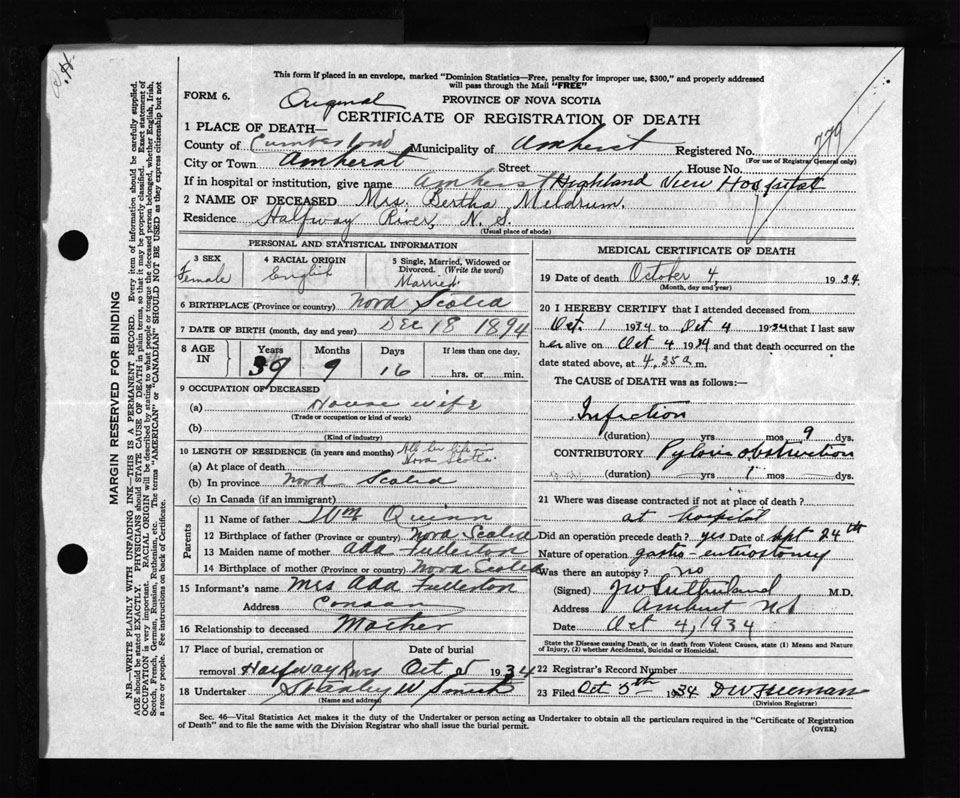 This form if placed in an envelope, marked "Dominion Statistics—Free, penalty for improper use, $300," and properly addressed
will pass through the Mail "FREE"
FORM 6.
Original
PROVINCE OF NOVA SCOTIA
CERTIFICATE OF REGISTRATION OF DEATH
779
1 PLACE OF DEATH—
County of Cumberland Municipality of Amherst Registered No.
(For use of Registrar General only)
City or Town Amherst Street House No.
If in hospital or institution, give name Amherst Highland View Hospital
2 NAME OF DECEASED Mrs. Bertha Meldrum.
Residence Halfway River, N. S.
(Usual place of abode)
PERSONAL AND STATISTICAL INFORMATION
3 SEX 4 RACIAL ORIGIN 5 Single, Married, Widowed or
Divorced. (Write the word)
Female English Married.
6 BIRTHPLACE (Province or country) Nova Scotia
7 DATE OF BIRTH (month, day and year) Dec 18 1894
8 AGE IN Years Months Days If less than one day,
39 9 16 hrs. or min.
9 OCCUPATION OF DECEASED
(a) House wife
(Trade or occupation or kind of work)
(b)
(Kind of industry)
10 LENGTH OF RESIDENCE (in years and months) All her life in
Nova Scotia
(a) At place of death
(b) In province Nova Scotia
(c) In Canada (if an immigrant)
Parents
11 Name of father Wm Quinn
12 Birthplace of father (Province or country) Nova Scotia
13 Maiden name of mother Ada Fullerton
14 Birthplace of mother (Province or country) Nova Scotia
15 Informant's name Mrs Ada Fullerton
Address
16 Relationship to deceased Mother
17 Place of burial, cremation or Date of burial
removal Halfway River Oct 5 1934
18 Undertaker Stanley W
(Name and address)
MEDICAL CERTIFICATE OF DEATH
19 Date of death October 4, 1934
(Month, day and year)
20 I HEREBY CERTIFY that I attended deceased from
Oct. 1 1934 to Oct 4 1934 that I last saw
her alive on Oct 4 1934 and that death occurred on the
date stated above, at 4.35 a m.
The CAUSE OF DEATH was as follows:
Infection
(duration) yrs mos 9 dys.
CONTRIBUTORY Pyloric obstruction
(duration) yrs 1 mos dys.
21 Where was disease contracted if not at place of death?
at hospital
Did an operation precede death? yes Date of Sept 24th
Nature of operation gastro-enterostomy
Was there an autopsy? no
(Signed) M.D.
Address Amherst NS
Date Oct 4, 1934
State the Disease causing Death, or in death from Violent Causes, state (1) Means and Nature
of Injury, (2) whether Accidental, Suicidal or Homicidal.
22 Registrar's Record Number
23 Filed Oct 5th 1934
(Division Registrar)
Sec. 46—Vital Statistics Act makes it the duty of the Undertaker or person acting as Undertaker to obtain all the particulars required in the "Certificate of Registration
of Death" and to file the same with the Division Registrar who shall issue the burial permit.
(OVER)
MARGIN RESERVED FOR BINDING
N.B.—WRITE PLAINLY WITH UNFADING INK—THIS IS A PERMANENT RECORD. Every item of information should be carefully supplied.
AGE should be stated EXACTLY. PHYSICIANS should STATE CAUSE OF DEATH in plain terms, so that it may be properly classified. Exact statement of
OCCUPATION is very important. RACIAL ORIGIN will be described by stating to what people or tongue the deceased person belonged, whether English, Irish,
Scotch, French, German, Russian, Ruthenian, etc. The terms "AMERICAN" or "CANADIAN" SHOULD NOT BE USED as they express citizenship but not
a race or people. See instructions on back of Certificate.